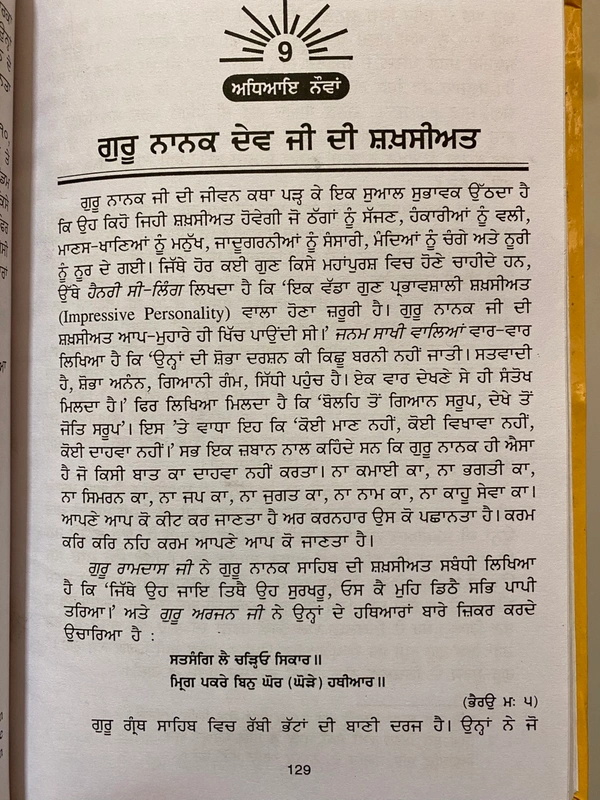 9
ਅਧਿਆਇ ਨੌਵਾਂ
ਗੁਰੂ ਨਾਨਕ ਦੇਵ ਜੀ ਦੀ ਸ਼ਖ਼ਸੀਅਤ
ਗੁਰੂ ਨਾਨਕ ਜੀ ਦੀ ਜੀਵਨ ਕਥਾ ਪੜ੍ਹ ਕੇ ਇਕ ਸੁਆਲ ਸੁਭਾਵਕ ਉੱਠਦਾ ਹੈ
ਕਿ ਉਹ ਕਿਹੋ ਜਿਹੀ ਸ਼ਖ਼ਸੀਅਤ ਹੋਵੇਗੀ ਜੋ ਠੱਗਾਂ ਨੂੰ ਸੱਜਣ, ਹੰਕਾਰੀਆਂ ਨੂੰ ਵਲੀ,
ਮਾਣਸ-ਖਾਣਿਆਂ ਨੂੰ ਮਨੁੱਖ, ਜਾਦੂਗਰਨੀਆਂ ਨੂੰ ਸੰਸਾਰੀ, ਮੰਦਿਆਂ ਨੂੰ ਚੰਗੇ ਅਤੇ ਨੂਰੀ
ਨੂੰ ਨੂਰ ਦੇ ਗਈ। ਜਿੱਥੇ ਹੋਰ ਕਈ ਗੁਣ ਕਿਸੇ ਮਹਾਂਪੁਰਸ਼ ਵਿਚ ਹੋਣੇ ਚਾਹੀਦੇ ਹਨ,
ਉੱਥੇ ਹੈਨਰੀ ਸੀ-ਲਿੰਗ ਲਿਖਦਾ ਹੈ ਕਿ ‘ਇਕ ਵੱਡਾ ਗੁਣ ਪ੍ਰਭਾਵਸ਼ਾਲੀ ਸ਼ਖ਼ਸੀਅਤ
(Impressive Personality) ਵਾਲਾ ਹੋਣਾ ਜ਼ਰੂਰੀ ਹੈ। ਗੁਰੂ ਨਾਨਕ ਜੀ ਦੀ
ਸ਼ਖ਼ਸੀਅਤ ਆਪ-ਮੁਹਾਰੇ ਹੀ ਖਿੱਚ ਪਾਉਂਦੀ ਸੀ।’ ਜਨਮ ਸਾਖੀ ਵਾਲਿਆਂ ਵਾਰ-ਵਾਰ
ਲਿਖਿਆ ਹੈ ਕਿ ‘ਉਨ੍ਹਾਂ ਦੀ ਸ਼ੋਭਾ ਦਰਸ਼ਨ ਕੀ ਕਿਛੂ ਬਰਨੀ ਨਹੀਂ ਜਾਤੀ। ਸਤਵਾਦੀ
ਹੈ, ਸ਼ੋਭਾ ਅਨੰਨ, ਗਿਆਨੀ ਗੰਮ, ਸਿੱਧੀ ਪਹੁੰਚ ਹੈ। ਏਕ ਵਾਰ ਦੇਖਣੇ ਸੇ ਹੀ ਸੰਤੋਖ
ਮਿਲਦਾ ਹੈ।’ ਫਿਰ ਲਿਖਿਆ ਮਿਲਦਾ ਹੈ ਕਿ ‘ਬੋਲਹਿ ਤੋਂ ਗਿਆਨ ਸਰੂਪ, ਦੇਖੇ ਤੋਂ
ਜੋਤਿ ਸਰੂਪ’। ਇਸ ’ਤੇ ਵਾਧਾ ਇਹ ਕਿ ‘ਕੋਈ ਮਾਣ ਨਹੀਂ, ਕੋਈ ਵਿਖਾਵਾ ਨਹੀਂ,
ਕੋਈ ਦਾਹਵਾ ਨਹੀਂ।’ ਸਭ ਇਕ ਜ਼ਬਾਨ ਨਾਲ ਕਹਿੰਦੇ ਸਨ ਕਿ ਗੁਰੂ ਨਾਨਕ ਹੀ ਐਸਾ
ਹੈ ਜੋ ਕਿਸੀ ਬਾਤ ਕਾ ਦਾਹਵਾ ਨਹੀਂ ਕਰਤਾ। ਨਾ ਕਮਾਈ ਕਾ, ਨਾ ਭਗਤੀ ਕਾ,
ਨਾ ਸਿਮਰਨ ਕਾ, ਨਾ ਜਪ ਕਾ, ਨਾ ਜੁਗਤ ਕਾ, ਨਾ ਨਾਮ ਕਾ, ਨਾ ਕਾਹੂ ਸੇਵਾ ਕਾ।
ਆਪਣੇ ਆਪ ਕੋ ਕੀਟ ਕਰ ਜਾਣਤਾ ਹੈ ਅਰ ਕਰਨਹਾਰ ਉਸ ਕੋ ਪਛਾਨਤਾ ਹੈ। ਕਰਮ
ਕਰਿ ਕਰਿ ਨਹਿ ਕਰਮ ਆਪਣੇ ਆਪ ਕੋ ਜਾਣਤਾ ਹੈ।
ਗੁਰੂ ਰਾਮਦਾਸ ਜੀ ਨੇ ਗੁਰੂ ਨਾਨਕ ਸਾਹਿਬ ਦੀ ਸ਼ਖ਼ਸੀਅਤ ਸਬੰਧੀ ਲਿਖਿਆ
ਹੈ ਕਿ ‘ਜਿੱਥੇ ਉਹ ਜਾਇ ਤਿਥੈ ਉਹ ਸੁਰਖਰੂ, ਓਸ ਕੈ ਮੁਹਿ ਡਿਠੈ ਸਭਿ ਪਾਪੀ
ਤਰਿਆ।’ ਅਤੇ ਗੁਰੂ ਅਰਜਨ ਜੀ ਨੇ ਉਨ੍ਹਾਂ ਦੇ ਹਥਿਆਰਾਂ ਬਾਰੇ ਜ਼ਿਕਰ ਕਰਦੇ
ਉਚਾਰਿਆ ਹੈ :
ਸਤਸੰਗਿ ਲੈ ਚੜ੍ਹਿਓ ਸਿਕਾਰ॥
ਮ੍ਰਿਗ ਪਕਰੇ ਬਿਨੁ ਘੋਰ (ਘੋੜੇ) ਹਥੀਆਰ॥
(ਭੈਰਉ ਮਃ ੫)
ਗੁਰੂ ਗ੍ਰੰਥ ਸਾਹਿਬ ਵਿਚ ਰੱਬੀ ਭੱਟਾਂ ਦੀ ਬਾਣੀ ਦਰਜ ਹੈ। ਉਨ੍ਹਾਂ ਨੇ ਜੋ
129